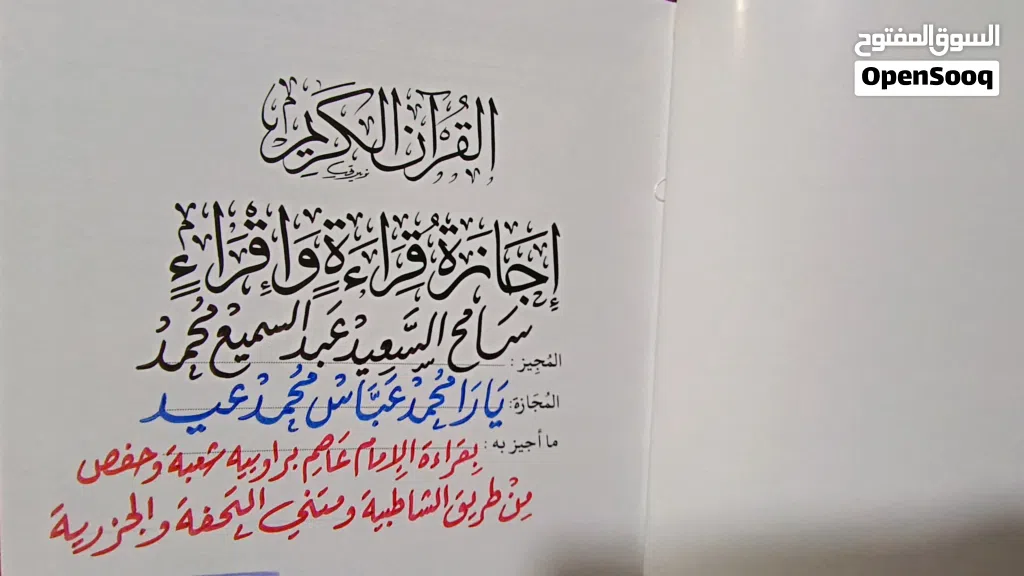 السوق المفتوح
OpenSooq
القُرآن الكريم
إِجَازَةُ قِرَاءَةٍ وَإِقْرَاءٍ
المُجيز : سَامح السَّعِيدْ عَبد السميعْ مُحمدْ
المُجَازة: يَارَا مُحمدْ عَبَّاسْ مُحمدْ عيد
ما أجيز به : بِقراءة الإمام عَاصِم براوييه شعبة وحفص
مِنْ طريق الشاطبية ومتني التحفة والجزرية